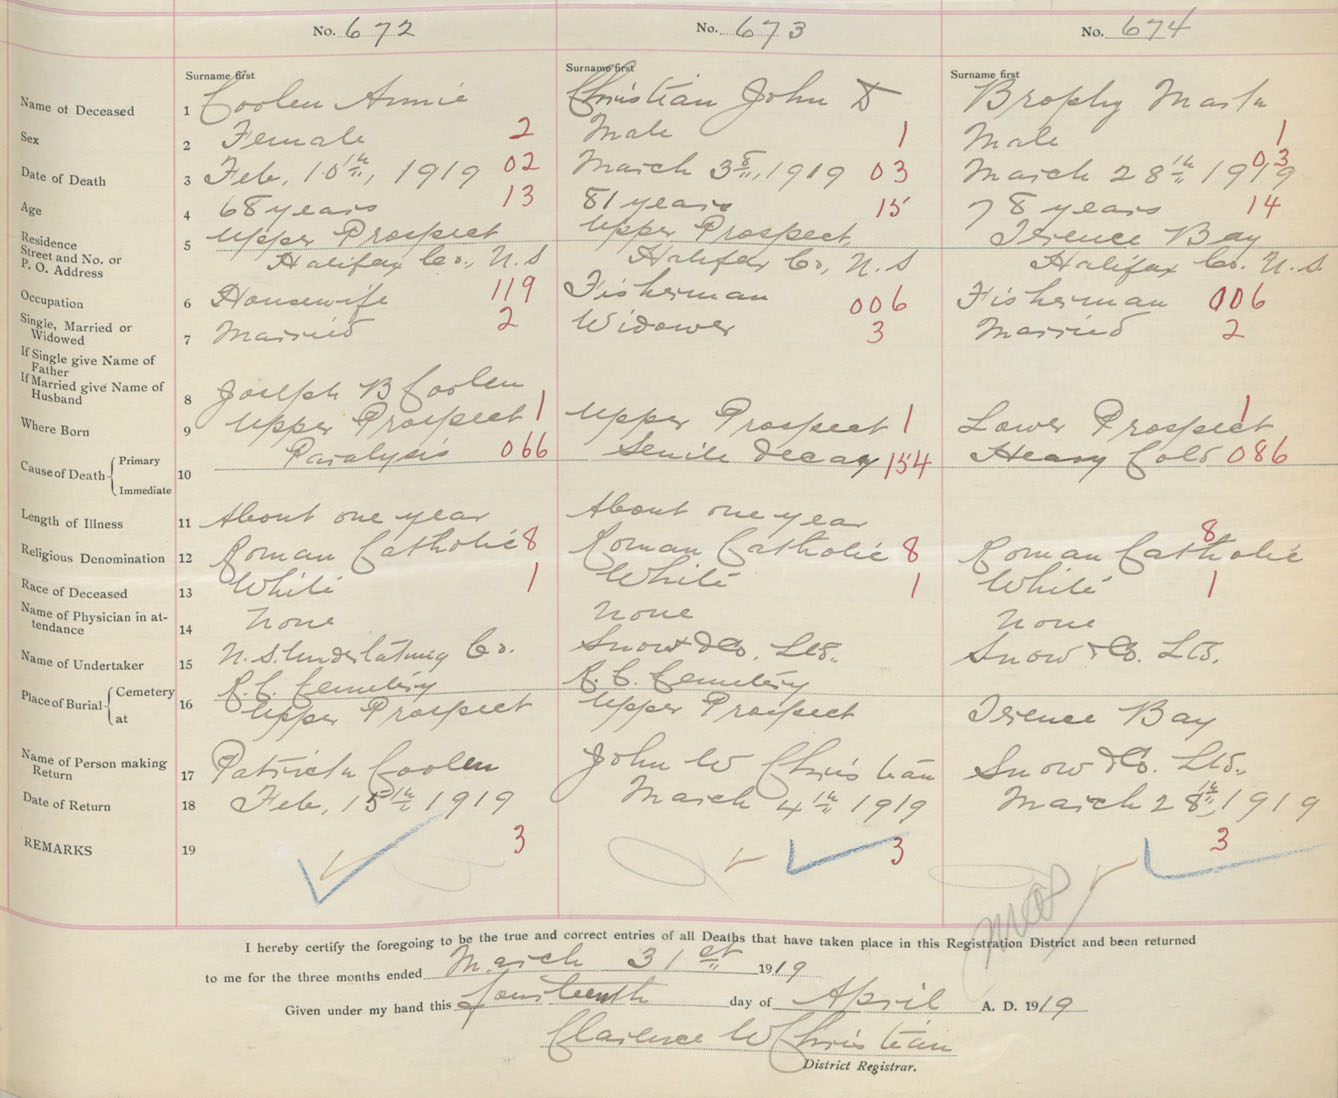 No. 672 No. 673 No. 674
Surname first Surname first Surname first
Name of Deceased 1 Coolen Annie Christian John D Brophy Martn
Sex 2 Female 2 Male 1 Male 1
Date of Death 3 Feb, 10th, 1919 02 March 3rd, 1919 03 March 28th 1919 03
Age 4 68 years 13 81 years 15 78 years 14
Residence
Street and No. or
P. O. Address 5 Upper Prospect Upper Prospect Terence Bay
Halifax Co., N.S Halifax Co, N.S Halifax Co. N.S.
Occupation 6 Housewife 119 Fisherman 006 Fisherman 006
Single, Married or
Widowed 7 Married 2 Widower 3 Married 2
If Single give Name of
Father
If Married give Name of
Husband 8 Joseph B Coolen
Where Born 9 Upper Prospect 1 Upper Prospect 1 Lower Prospect 1
Cause of Death Primary
Immediate 10 Paralysis 066 Senile Decay 154 Heavy Cold 086
Length of Illness 11 About one year About one year
Religious Denomination 12 Roman Catholic 8 Roman Catholic 8 Roman Catholic 8
Race of Deceased 13 White 1 White 1 White 1
Name of Physician in at-
tendance 14 None None None
Name of Undertaker 15 N.S. Undertaking Co. Snow & Co. Ltd. Snow & Co. Ltd.
Place of Burial Cemetery
at 16 R.C. Cemetery R.C. Cemetery
Upper Prospect Upper Prospect Terence Bay
Name of Person making
Return 17 Patrick Coolen John W Christian Snow & Co. Ltd.
Date of Return 18 Feb, 15th 1919 March 4th 1919 March 28th, 1919
REMARKS 19 3 3 3
I hereby certify the foregoing to be the true and correct entries of all Deaths that have taken place in this Registration District and been returned
to me for the three months ended March 31st 1919
Given under my hand this fourteenth day of April A. D. 1919
Clarence W Christian
District Registrar.